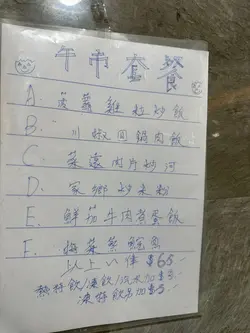 午市套餐
A. 菠蘿雞粒炒飯
B. 川椒回鍋肉飯
C. 菜遠肉片炒河
D. 家鄉炒米粉
E. 鮮茄牛肉煮蛋飯
F. 梅菜蒸鯇魚
以上 伴 $65.-
熱杯飲/凍飲/汽水加$5.-
凍杯飲品加$5.-